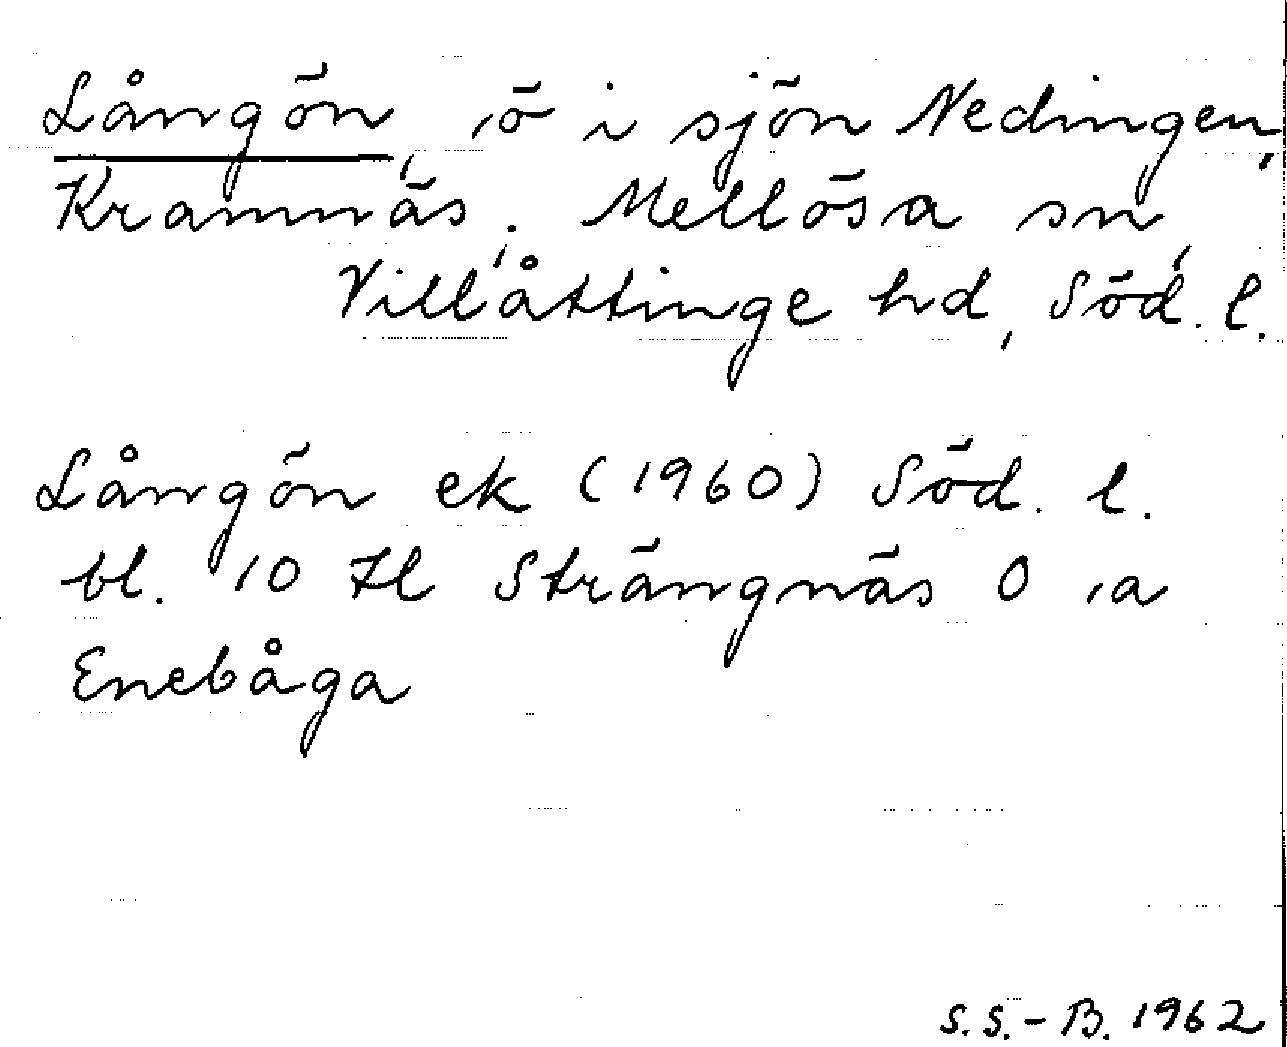 Långön, ö i sjön Nedingen,
Kramnäs, Mellösa sn,
Villåttinge hd, Söd. l.
Långön ek (1960) Söd. l.
bl. 10 tl Strängnäs O a
Enebåga
S.S.-B. 1962